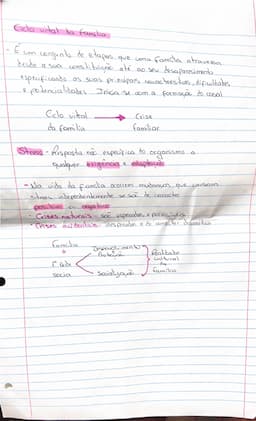 Ciclo vital da família
- É um conjunto de etapas que uma família atravessa
desde a sua constituição até ao seu desaparecimento
especificando as suas principais características, dificuldades
e potencialidades. Inicia-se com a formação do casal
Ciclo vital → Crise
da família familiar
Stress - Resposta não específica do organismo a
qualquer exigência e adaptação
- Na vida da família ocorrem mudanças que causam
stress independentemente se são de caracter
positivo ou negativo
- Crises naturais são esperadas e
- Crises inesperadas e de caracter
Família
Desenvolvimento
Proteção
Realidade
cultural
da
família
1ª rede
social
Socialização